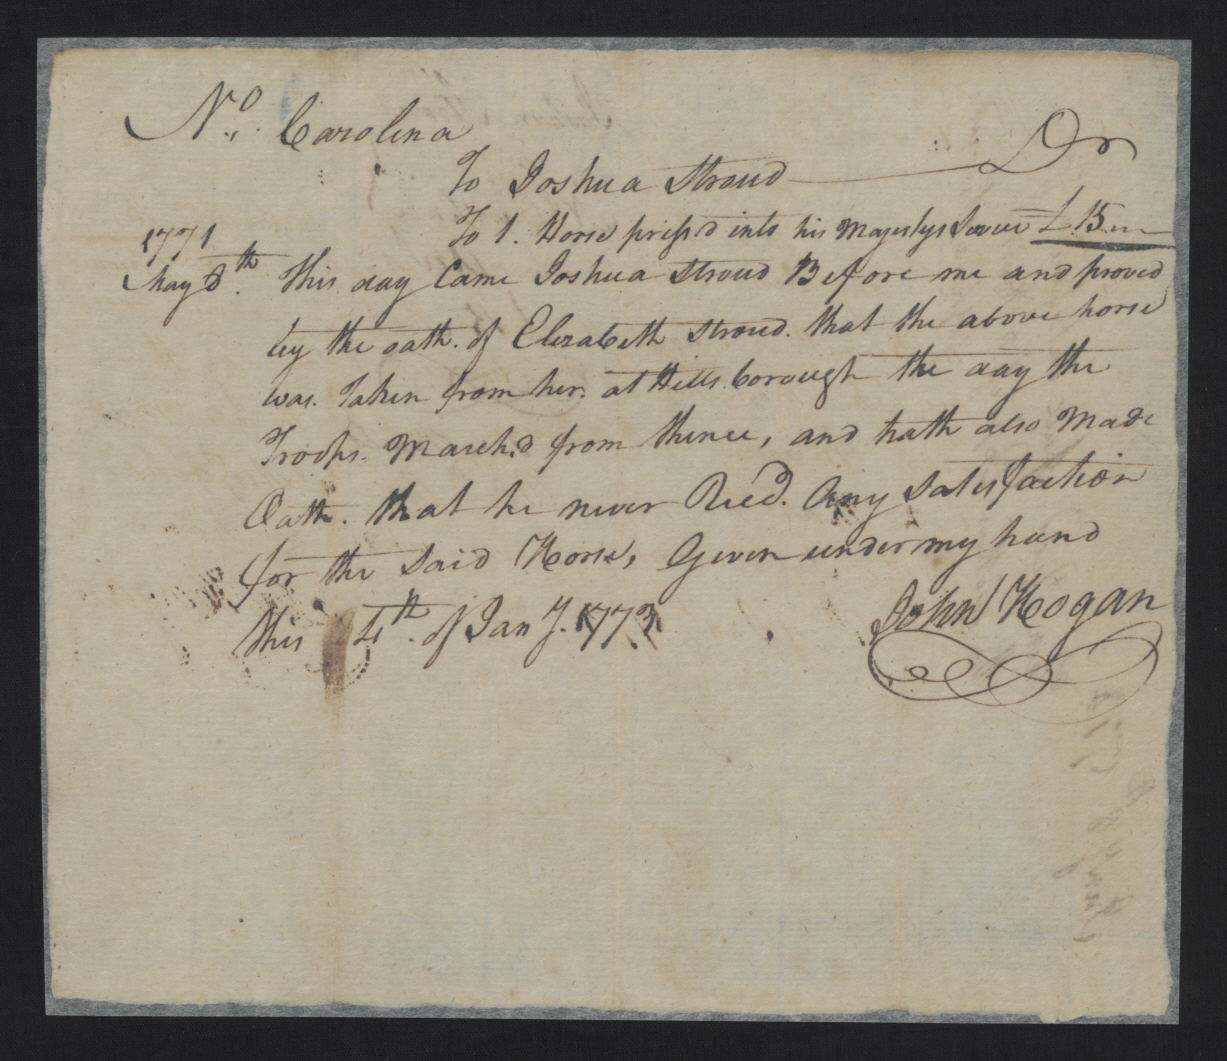 No. Carolina
To Joshua Stroud Dr
1771 To 1. Horse press'd into his Majestys Service £ 15.."..
May 8th. This day Came Joshua Stroud Before me and proved
by the oath. of Elizabeth Stroud. that the above horse
was. Taken from her. at Hillsborough the day the
Troops. March'd from thence, and hath also Made
Oath. that he never Recd. Any Satisfaction
for the Said Horse, Given under my hand
this 4th. of Jany. 1773
John Hogan